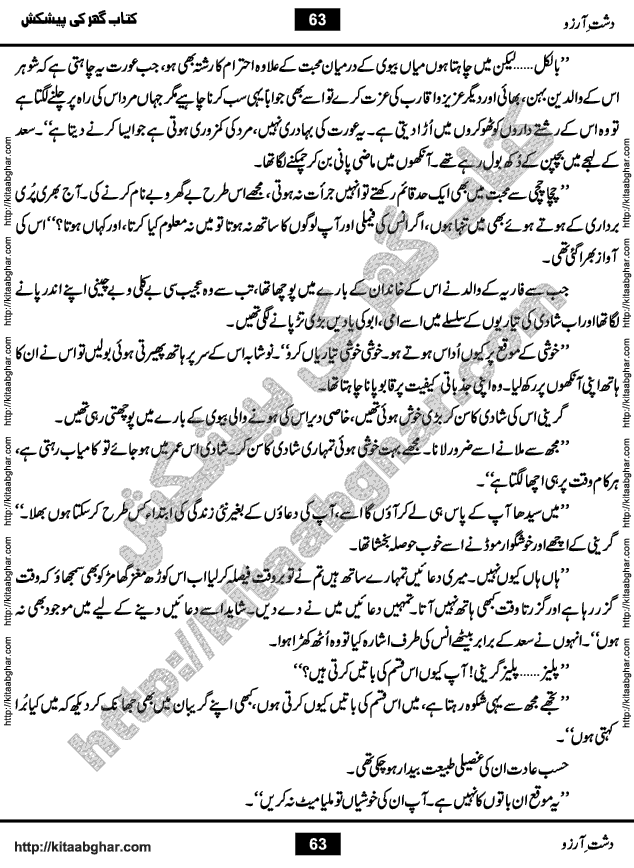 دشتِ آرزو
63
کتاب گھر کی پیشکش
’’بالکل......لیکن میں چاہتا ہوں میاں بیوی کے درمیان محبت کے علاوہ احترام کا رشتہ بھی ہو، جب عورت یہ چاہتی ہے کہ شوہر
اس کے والدین بہن، بھائی اور دیگر عزیز و اقارب کی عزت کرے تو اسے بھی جواباً یہی سب کرنا چاہیے مگر جہاں مرد اس کی راہ پر چلنے لگتا ہے
تو وہ اس کے رشتے داروں کو ٹھوکروں میں اُڑا دیتی ہے۔ یہ عورت کی بہادری نہیں، مرد کی کمزوری ہوتی ہے جو ایسا کرنے دیتا ہے‘‘۔ سعد
کے لہجے میں بچپن کے دُکھ بول رہے تھے۔ آنکھوں میں ماضی پانی بن کر چمکنے لگا تھا۔
’’چچا چچی سے محبت میں بھی ایک حد قائم رکھتے تو انہیں جرأت نہ ہوتی، مجھے اس طرح بے گھر و بے نام کرنے کی۔ آج بھری پُری
برداری کے ہوتے ہوئے بھی میں تنہا ہوں، اگر انس کی فیملی اور آپ لوگوں کا ساتھ نہ ہوتا تو میں نہ معلوم کیا کرتا، اور کہاں ہوتا؟‘‘ اس کی
آواز بھرا گئی تھی۔
جب سے فاریہ کے والد نے اس کے خاندان کے بارے میں پوچھا تھا، تب سے وہ عجیب سی بے کلی و بے چینی اپنے اندر پانے
لگا تھا اور اب شادی کی تیاریوں کے سلسلے میں اسے امی، ابو کی یادیں بڑی تڑپانے لگی تھیں۔
’’خوشی کے موقع پر کیوں اُداس ہوتے ہو۔ خوشی خوشی تیاریاں کرو‘‘۔ نوشابہ اس کے سر پر ہاتھ پھیرتی ہوئی بولیں تو اس نے ان کا
ہاتھ اپنی آنکھوں پر رکھ لیا۔ وہ اپنی جذباتی کیفیت پر قابو پانا چاہتا تھا۔
گرینی اس کی شادی کا سن کر بڑی خوش ہوئی تھیں، خاصی دیر اس کی ہونے والی بیوی کے بارے میں پوچھتی رہی تھیں۔
’’مجھ سے ملانے اسے ضرور لانا۔ مجھے بہت خوشی ہوئی تمہاری شادی کا سن کر۔ شادی اس عمر میں ہو جائے تو کامیاب رہتی ہے،
ہر کام وقت پر ہی اچھا لگتا ہے‘‘۔
’’میں سیدھا آپ کے پاس ہی لے کر آؤں گا اسے، آپ کی دعاؤں کے بغیر نئی زندگی کی ابتداء کس طرح کر سکتا ہوں بھلا‘‘۔
گرینی کے اچھے اور خوشگوار موڈ نے اسے خوب حوصلہ بخشا تھا۔
’’ہاں ہاں کیوں نہیں۔ میری دعائیں تمہارے ساتھ ہیں تم نے تو بر وقت فیصلہ کر لیا اب اس کوڑھ مغز گھامڑ کو بھی سمجھاؤ کہ وقت
گزر رہا ہے اور گزرتا وقت کبھی ہاتھ نہیں آتا۔ تمہیں دعائیں میں نے دے دیں۔ شاید اسے دعائیں دینے کے لیے میں موجود بھی نہ
ہوں‘‘۔ انہوں نے سعد کے برابر بیٹھے انس کی طرف اشارہ کیا تو وہ اُٹھ کھڑا ہوا۔
’’پلیز......پلیز گرینی! آپ کیوں اس قسم کی باتیں کرتی ہیں؟‘‘
’’تجھے مجھ سے یہی شکوہ رہتا ہے، میں اس قسم کی باتیں کیوں کرتی ہوں، کبھی اپنے گریبان میں بھی جھانک کر دیکھ کہ میں کیا بُرا
کہتی ہوں‘‘۔
حسب عادت ان کی غصیلی طبیعت بیدار ہو چکی تھی۔
’’یہ موقع ان باتوں کا نہیں ہے۔ آپ ان کی خوشیاں تو ملیا میٹ نہ کریں‘‘۔
کتاب گھر کی پیشکش
http://kitaabghar.com
http://kitaabghar.com http://kitaabghar.com http://kitaabghar.com http://kitaabghar.com http://kitaabghar.com http://kitaabghar.com
http://kitaabghar.com http://kitaabghar.com http://kitaabghar.com http://kitaabghar.com http://kitaabghar.com http://kitaabghar.com
دشتِ آرزو
63
http://kitaabghar.com